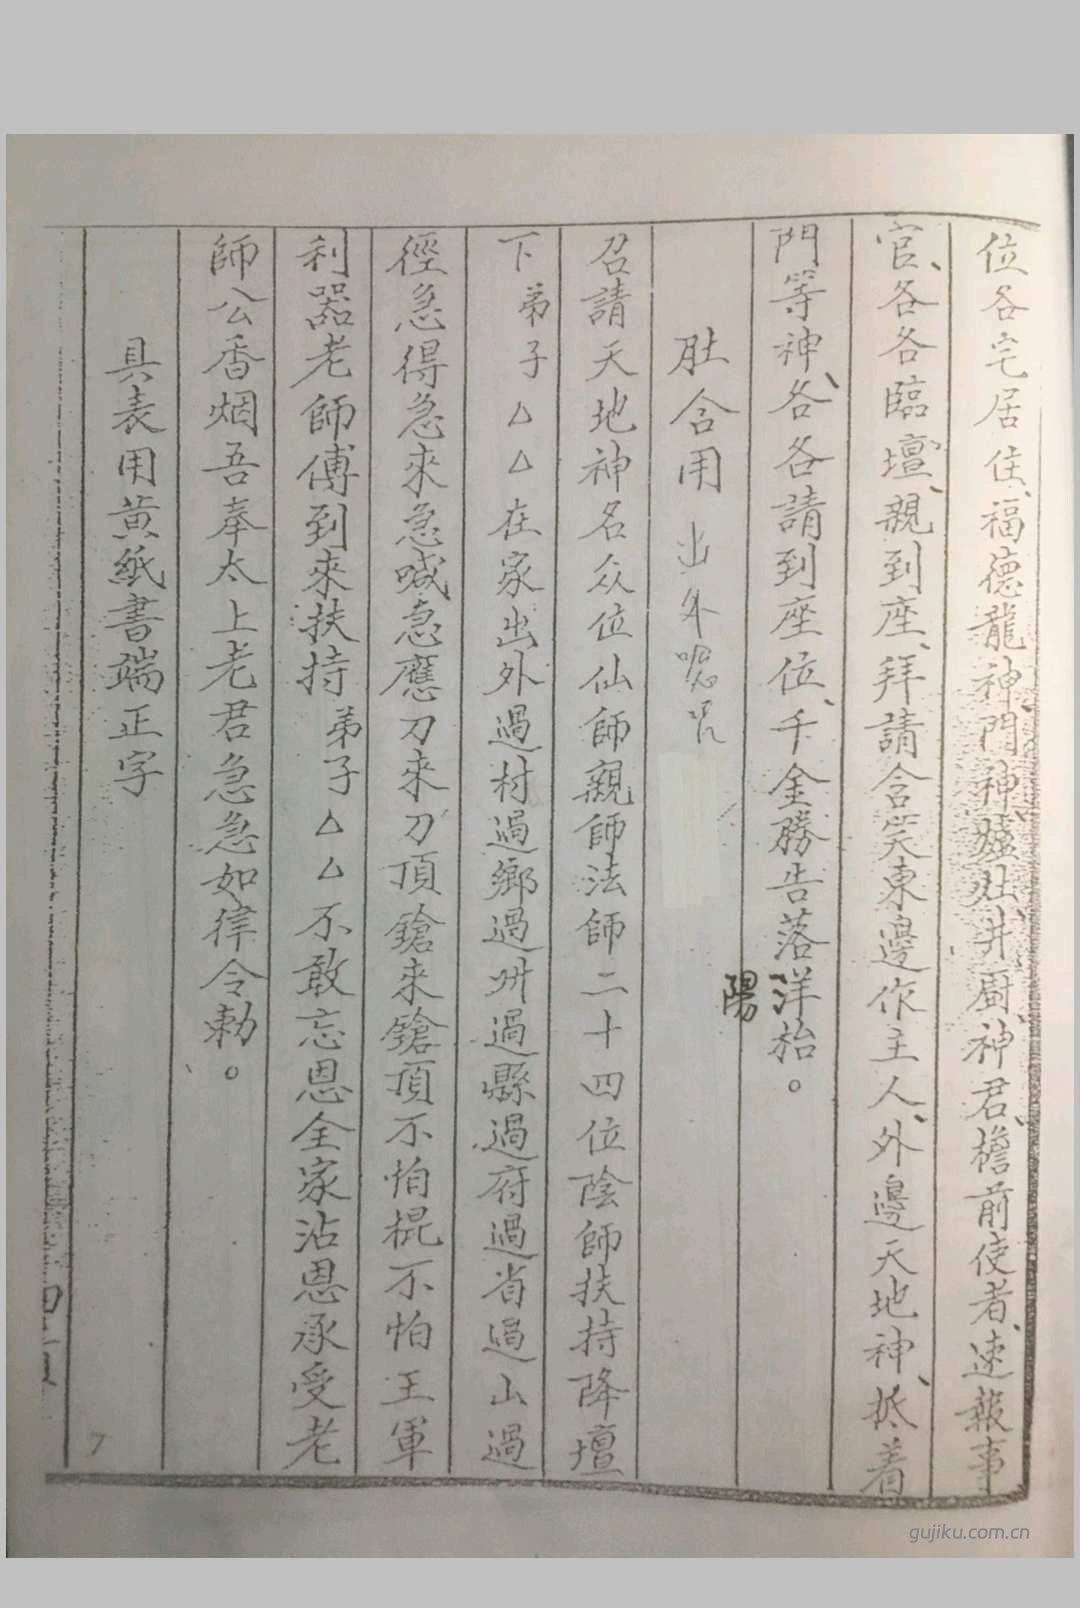 位各宅居住、福德龍神、門神、爐灶井厨神君、檐前使者、速報事
官、各各臨壇、親到座、拜請含笑東邊作主人、外邊天地神、抵着
門、等神、各各請到座位、千金勝告落洋枱。
陽
肚含用 出外
召請天地神名众位仙師親師法師二十四位陰師扶持降壇
下弟子△△在家出外過村過鄉過州過縣過府過省過山過
徑急得急來急喊急應刀来刀頂鎗来鎗頂不怕棍不怕王軍
利器老師傅到來扶持弟子△△不敢忘恩全家沾恩承受老
師公香烟吾奉太上老君急急如律令勅。
具表用黄紙書端正字
7
gujiku.com.cn